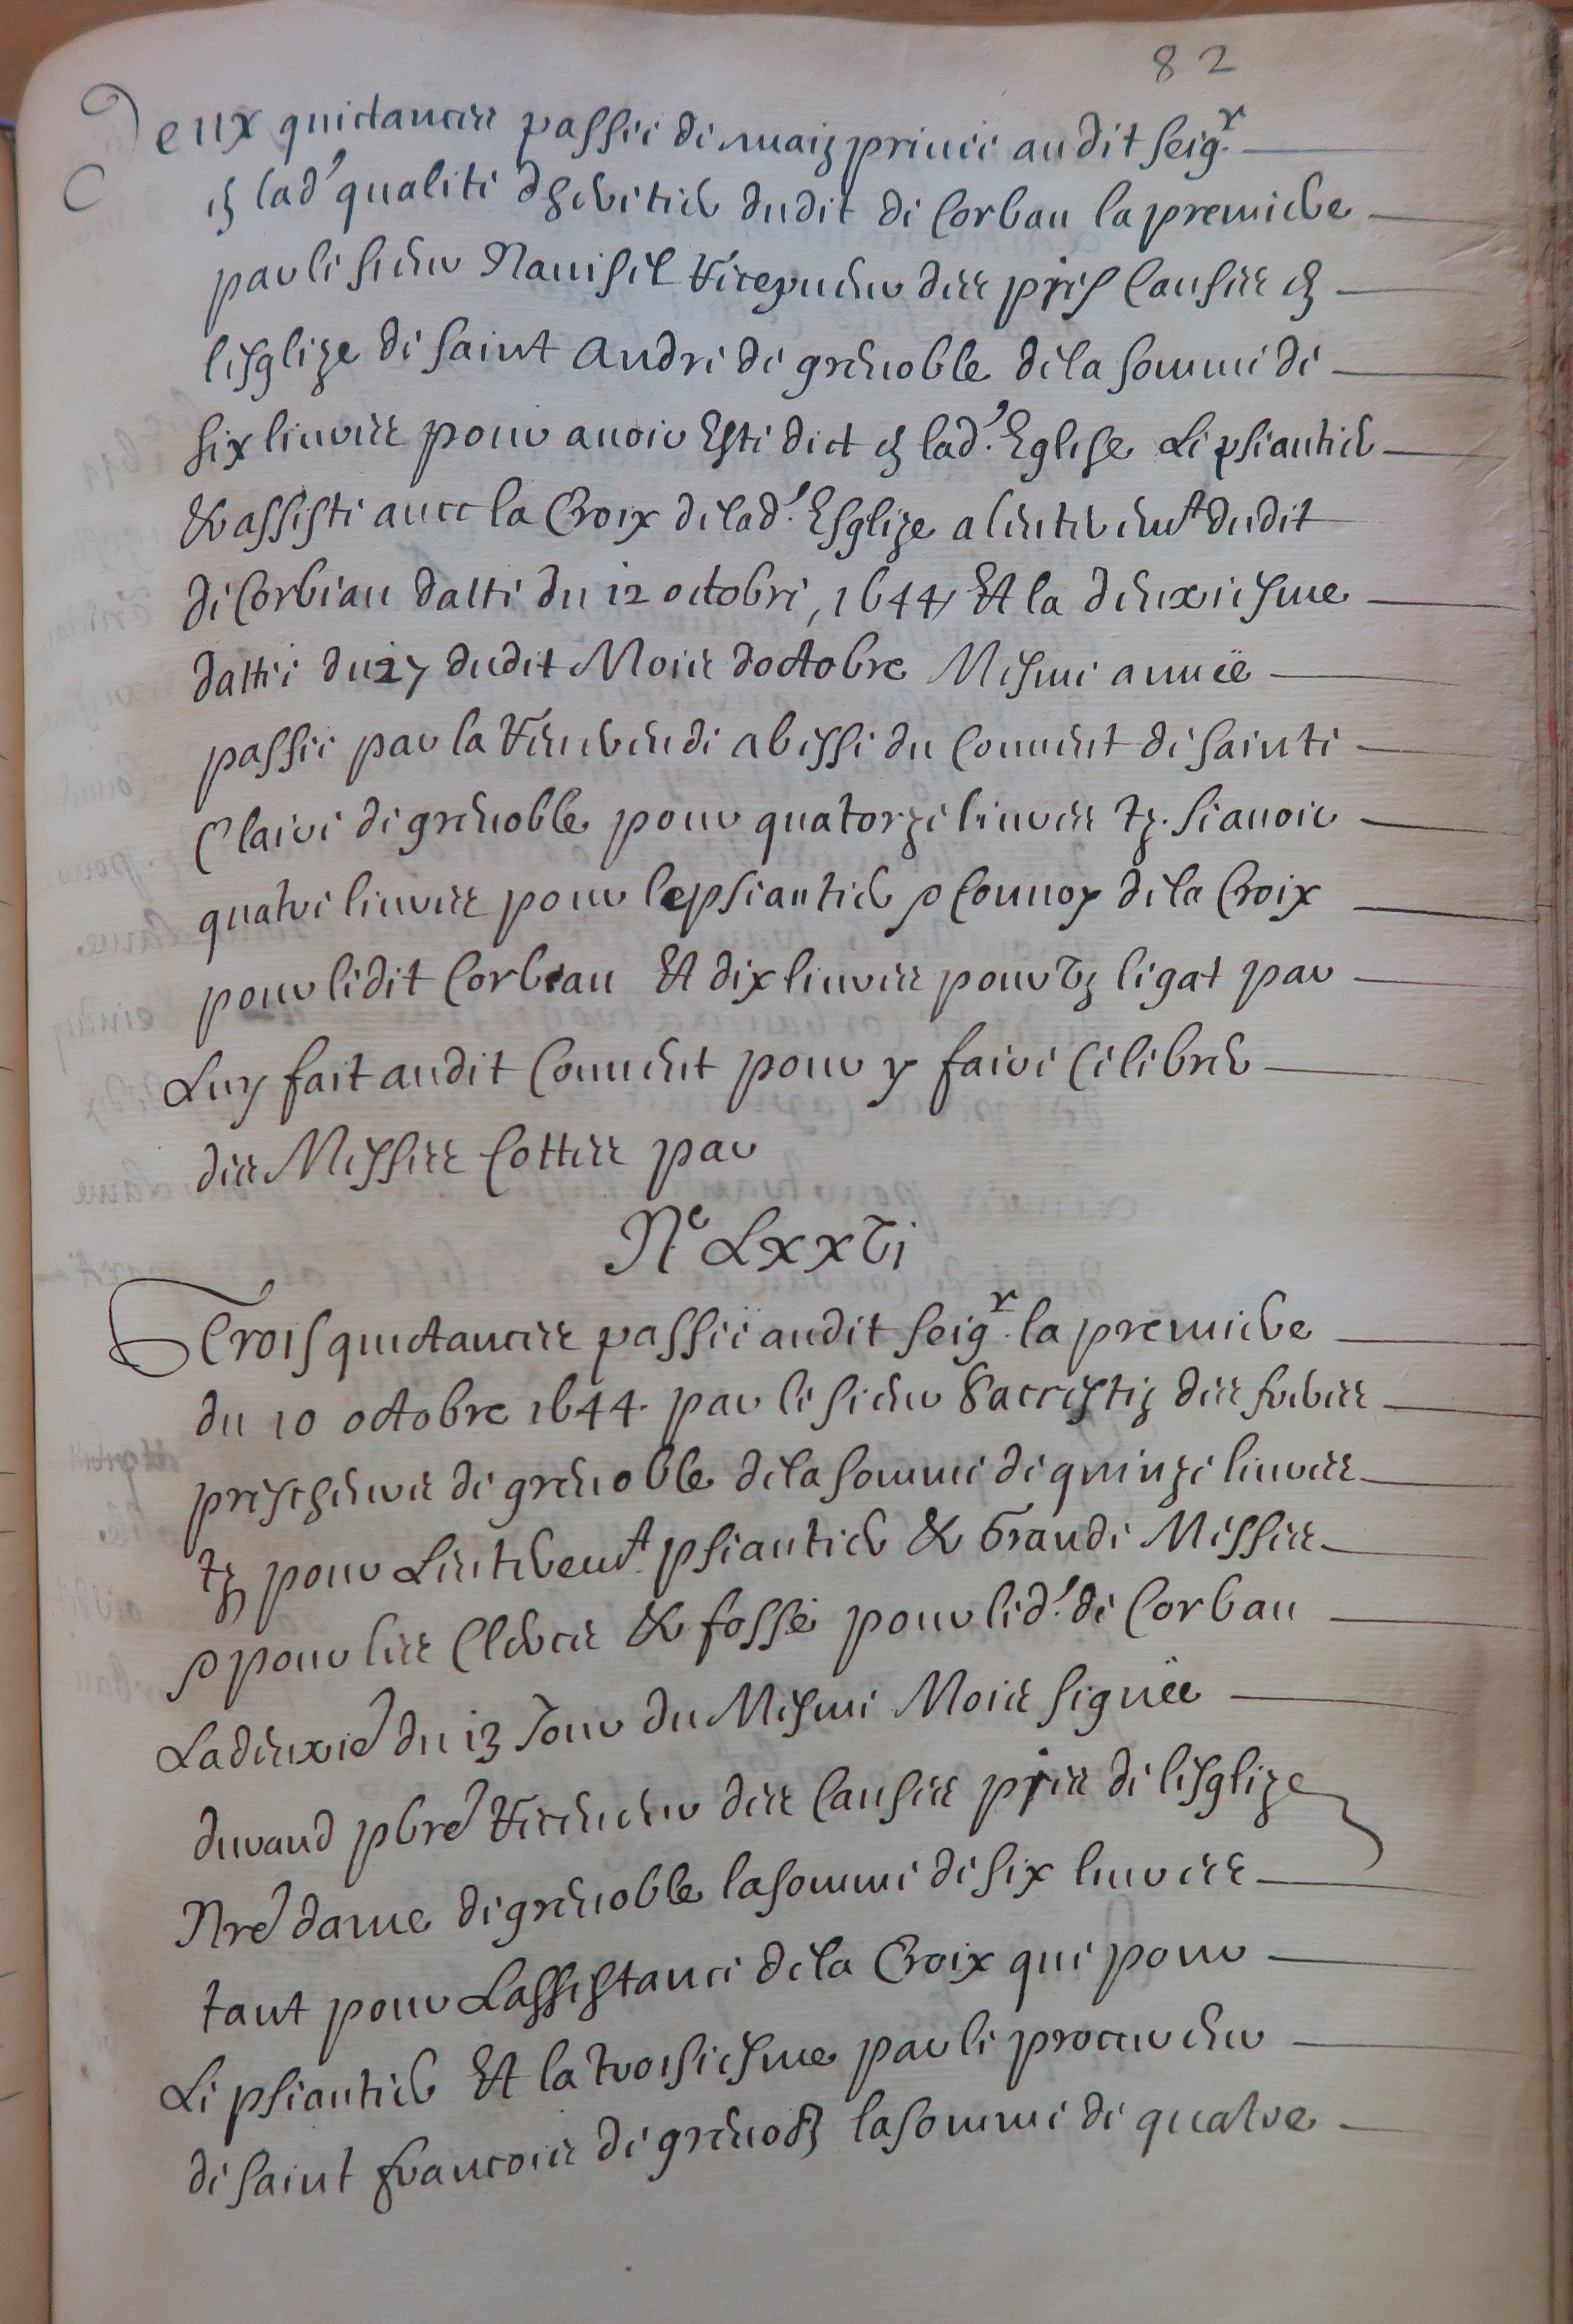 82
Deux quictances passée de main privée audit seigr
en lad' qualité d'heritier dudit de Corbau la premiere
par le sieur Receveur des Causes en
lesglize de saint andré de grenoble de la somme de
six livres pour avoir esté dict en lad' Eglise Le psiautier
& assisté avec la Croix de lad' Esglize a l'enterremt dudit
de Corbeau datté du 12 octobre, 1644 Et la deuxiesme
dattée du 27 dudit Mois doctobre Mesme année
passée par la Reverende abesse du Couvent de sainte
Claire de grenoble pour quatorze livres tz. sçavoir
quatre livres pour le psiautier Convoy de la Croix
pour ledit Corbeau Et dix livres pour un legat par
Luy fait audit Couvent pour y faire Celebrer
des Messes Cottées par
Ne Lxxvi
Trois quictances passée audit seigr. la premiere
du 10 octobre 1644. par le sieur Sacristin des freres
prescheurs de grenoble de la somme de quinze livres
tz pour Lenterremt. psiautier & Grande Messes
pour les Cierges & fosse pour led'. de Corbau
La deuxie du 13 Jour du Mesme Mois signée
durand pbre Receveur des Causes pies de lesglize
Nre dame de grenoble la somme de six livres
tant pour Lassistance de la Croix que pour
Le psiautier Et la troisiesme par le procureur
de saint francois de grenoble la somme de quatre